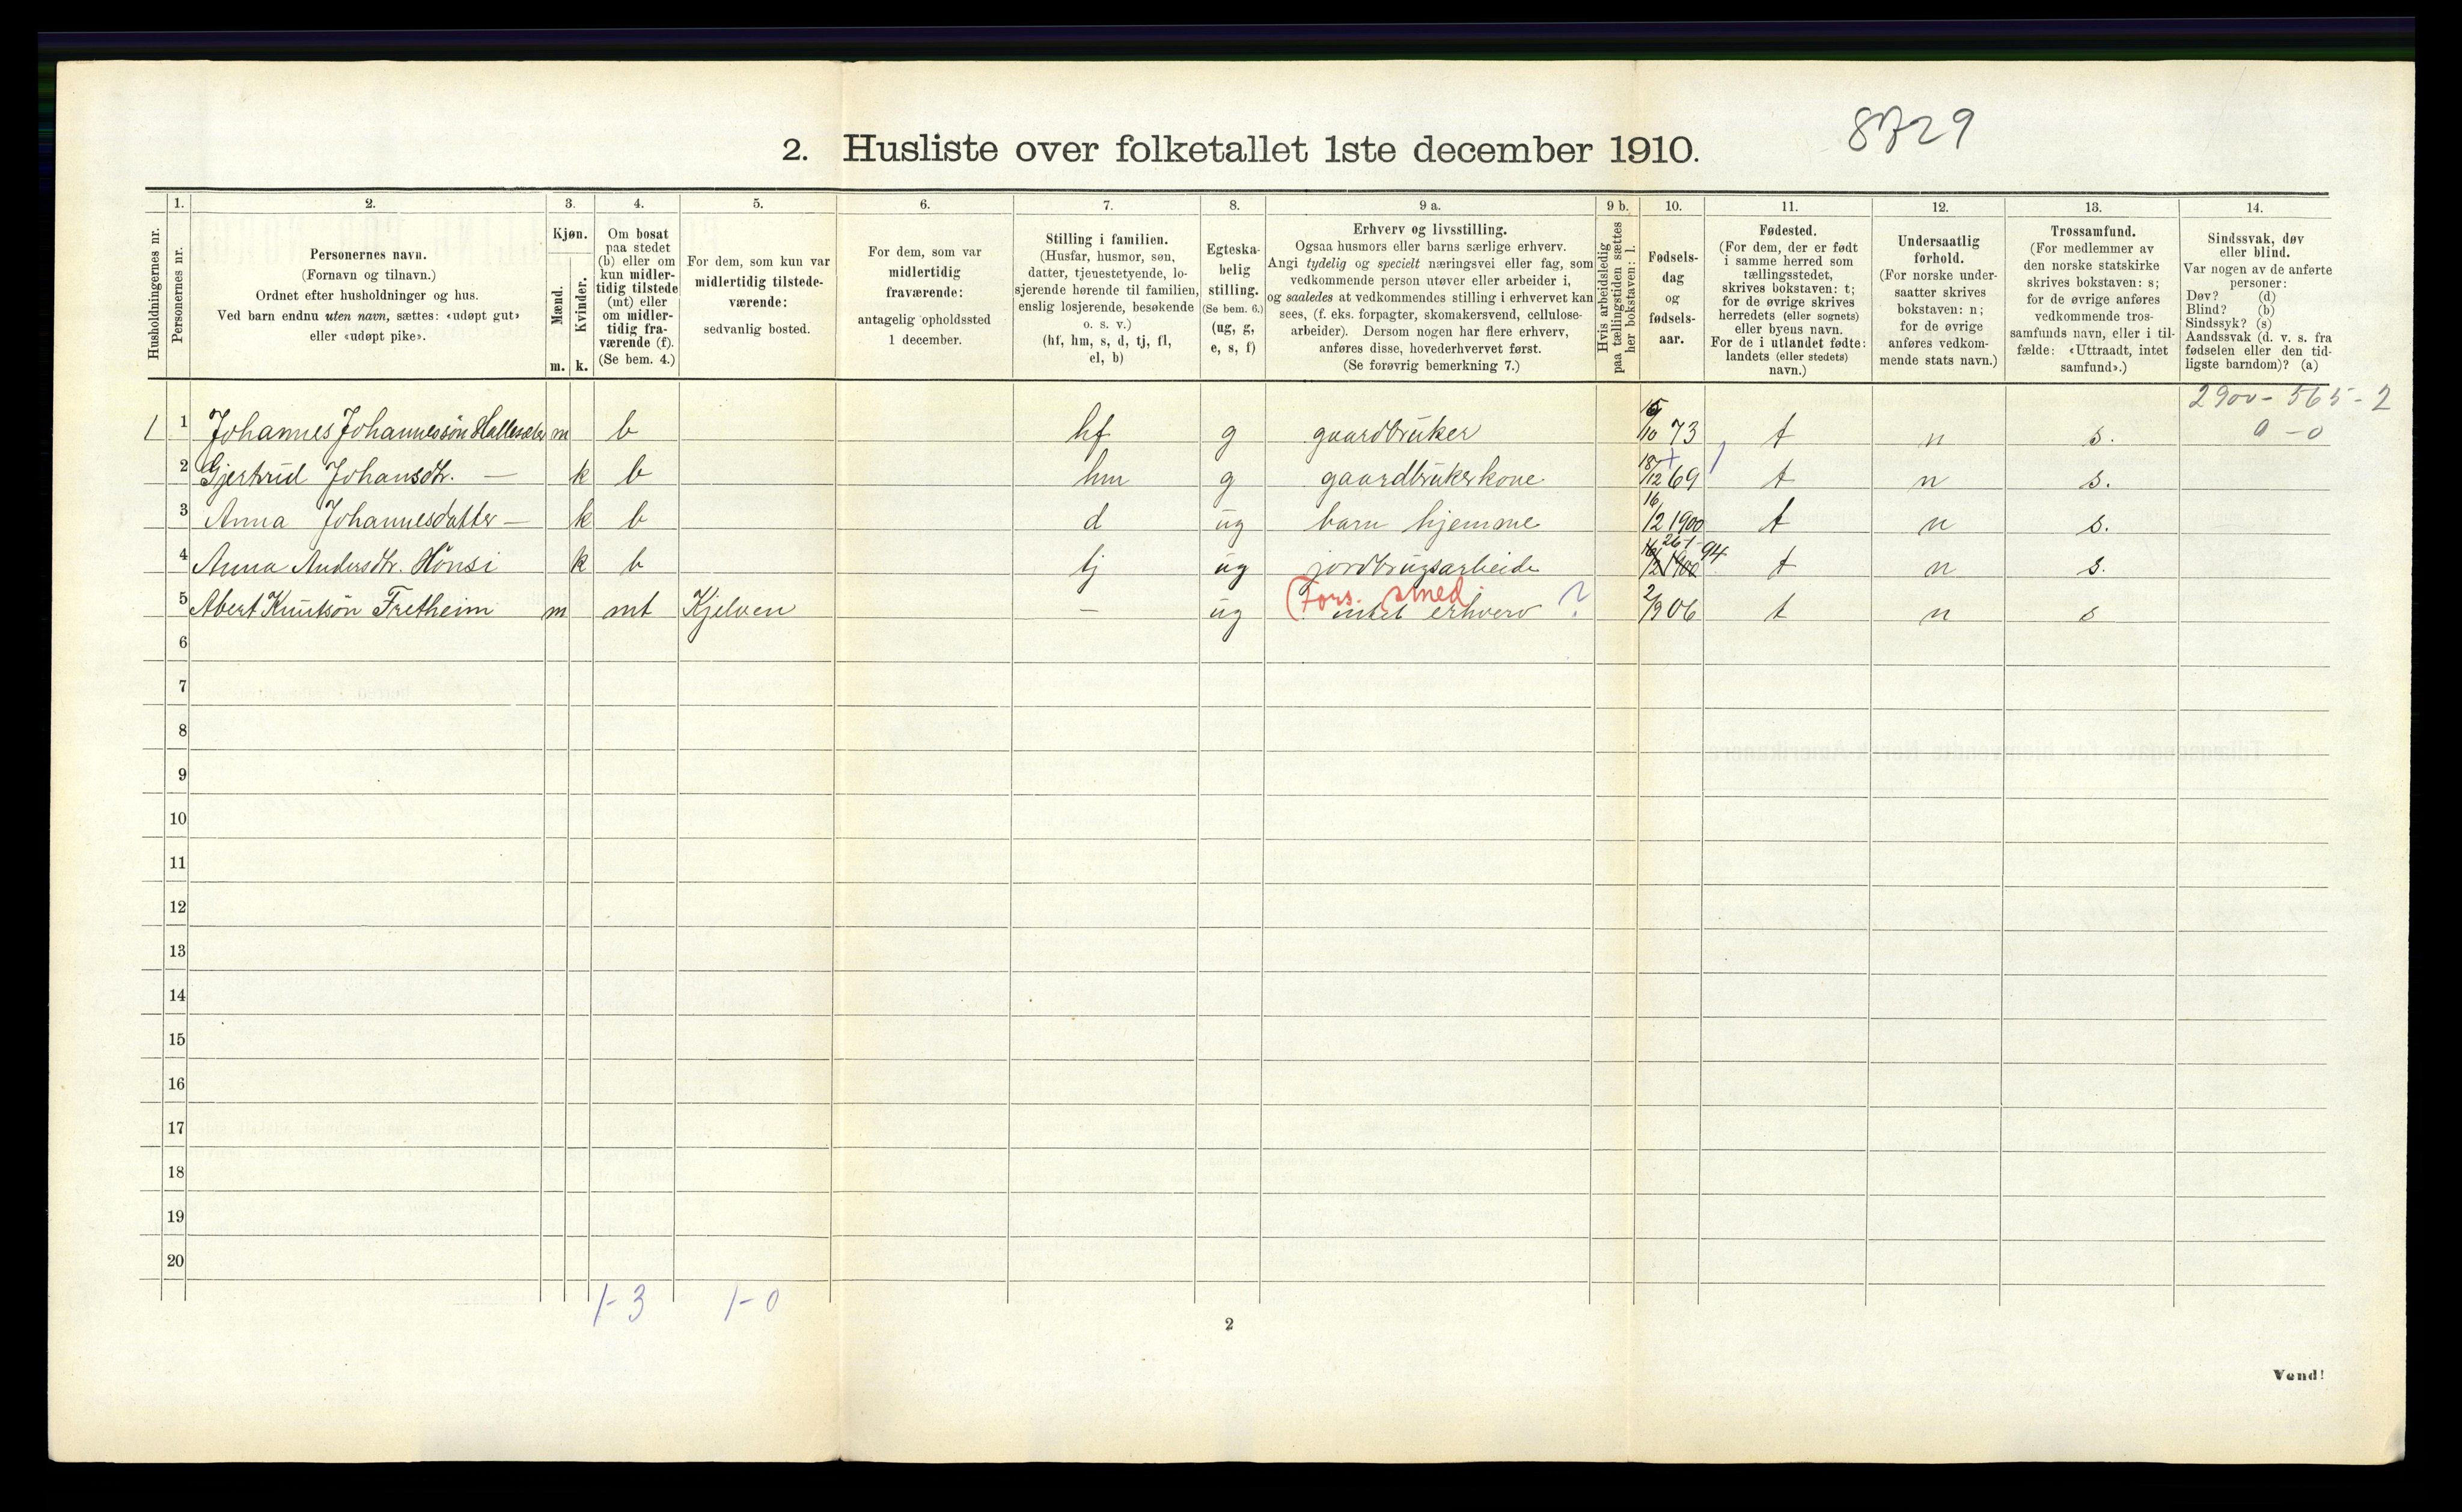 8729
2. Husliste over folketallet 1ste december 1910.
Husholdningernes nr.
1. Personernes nr.
2. Personernes navn.
(Fornavn og tilnavn.)
Ordnet efter husholdninger og hus.
Ved barn endnu uten navn, sættes: «udøpt gut»
eller «udøpt pike».
3. Kjøn.
Mænd. m.
Kvinder. k.
4. Om bosat
paa stedet
(b) eller om
kun midler-
tidig tilstede
(mt) eller
om midler-
tidig fra-
værende (f).
(Se bem. 4.)
5. For dem, som kun var
midlertidig tilstede-
værende:
sedvanlig bosted.
6. For dem, som var
midlertidig
fraværende:
antagelig opholdssted
1 december.
7. Stilling i familien.
(Husfar, husmor, søn,
datter, tjenestetyende, lo-
sjerende hørende til familien,
enslig losjerende, besøkende
o. s. v.)
(hf, hm, s, d, tj, fl,
el, b)
8. Egteska-
belig
stilling.
(Se bem. 6.)
(ug, g,
e, s, f)
9 a. Erhverv og livsstilling.
Ogsaa husmors eller barns særlige erhverv.
Angi tydelig og specielt næringsvei eller fag, som
vedkommende person utøver eller arbeider i,
og saaledes at vedkommendes stilling i erhvervet kan
sees, (f. eks. forpagter, skomakersvend, cellulose-
arbeider). Dersom nogen har flere erhverv,
anføres disse, hovederhvervet først.
(Se forøvrig bemerkning 7.)
9 b. Hvis arbeidsledig
paa tællingstiden sættes
her bokstaven: l.
10. Fødsels-
dag
og
fødsels-
aar.
11. Fødested.
(For dem, der er født
i samme herred som
tællingsstedet,
skrives bokstaven: t;
for de øvrige skrives
herredets (eller sognets)
eller byens navn.
For de i utlandet fødte:
landets (eller stedets)
navn.)
12. Undersaatlig
forhold.
(For norske under-
saatter skrives
bokstaven: n;
for de øvrige
anføres vedkom-
mende stats navn.)
13. Trossamfund.
(For medlemmer av
den norske statskirke
skrives bokstaven: s;
for de øvrige anføres
vedkommende tros-
samfunds navn, eller i til-
fælde: «Uttraadt, intet
samfund».)
14. Sindssvak, døv
eller blind.
Var nogen av de anførte
personer:
Døv? (d)
Blind? (b)
Sindssyk? (s)
Aandssvak (d. v. s. fra
fødselen eller den tid-
ligste barndom)? (a)
2900 - 565 - 2
0 - 0
1 1 Johannes Johannessøn m b hf g gaardbruker 10 73 t n s.
2 Gjertrud Johansdtr. — k b hm g gaardbrukerkone 18/12 69 t n s.
3 Anna Johannesdatter — k b d ug barn hjemme 16/2 1900 t n s.
4 Anna Andersdtr. Hønsi k b tj ug jordbrugsarbeide 16/2 1900 26/1 94 t n s.
5 Abert Knutsøn Fretheim m mt Kjelven — ug (Fors. smed intet erhverv ? 2/9 06 t n s
6
7
8
9
10
11
12
13
14
15
16
17
18
19
20
1-3 1-0
2
Vend!